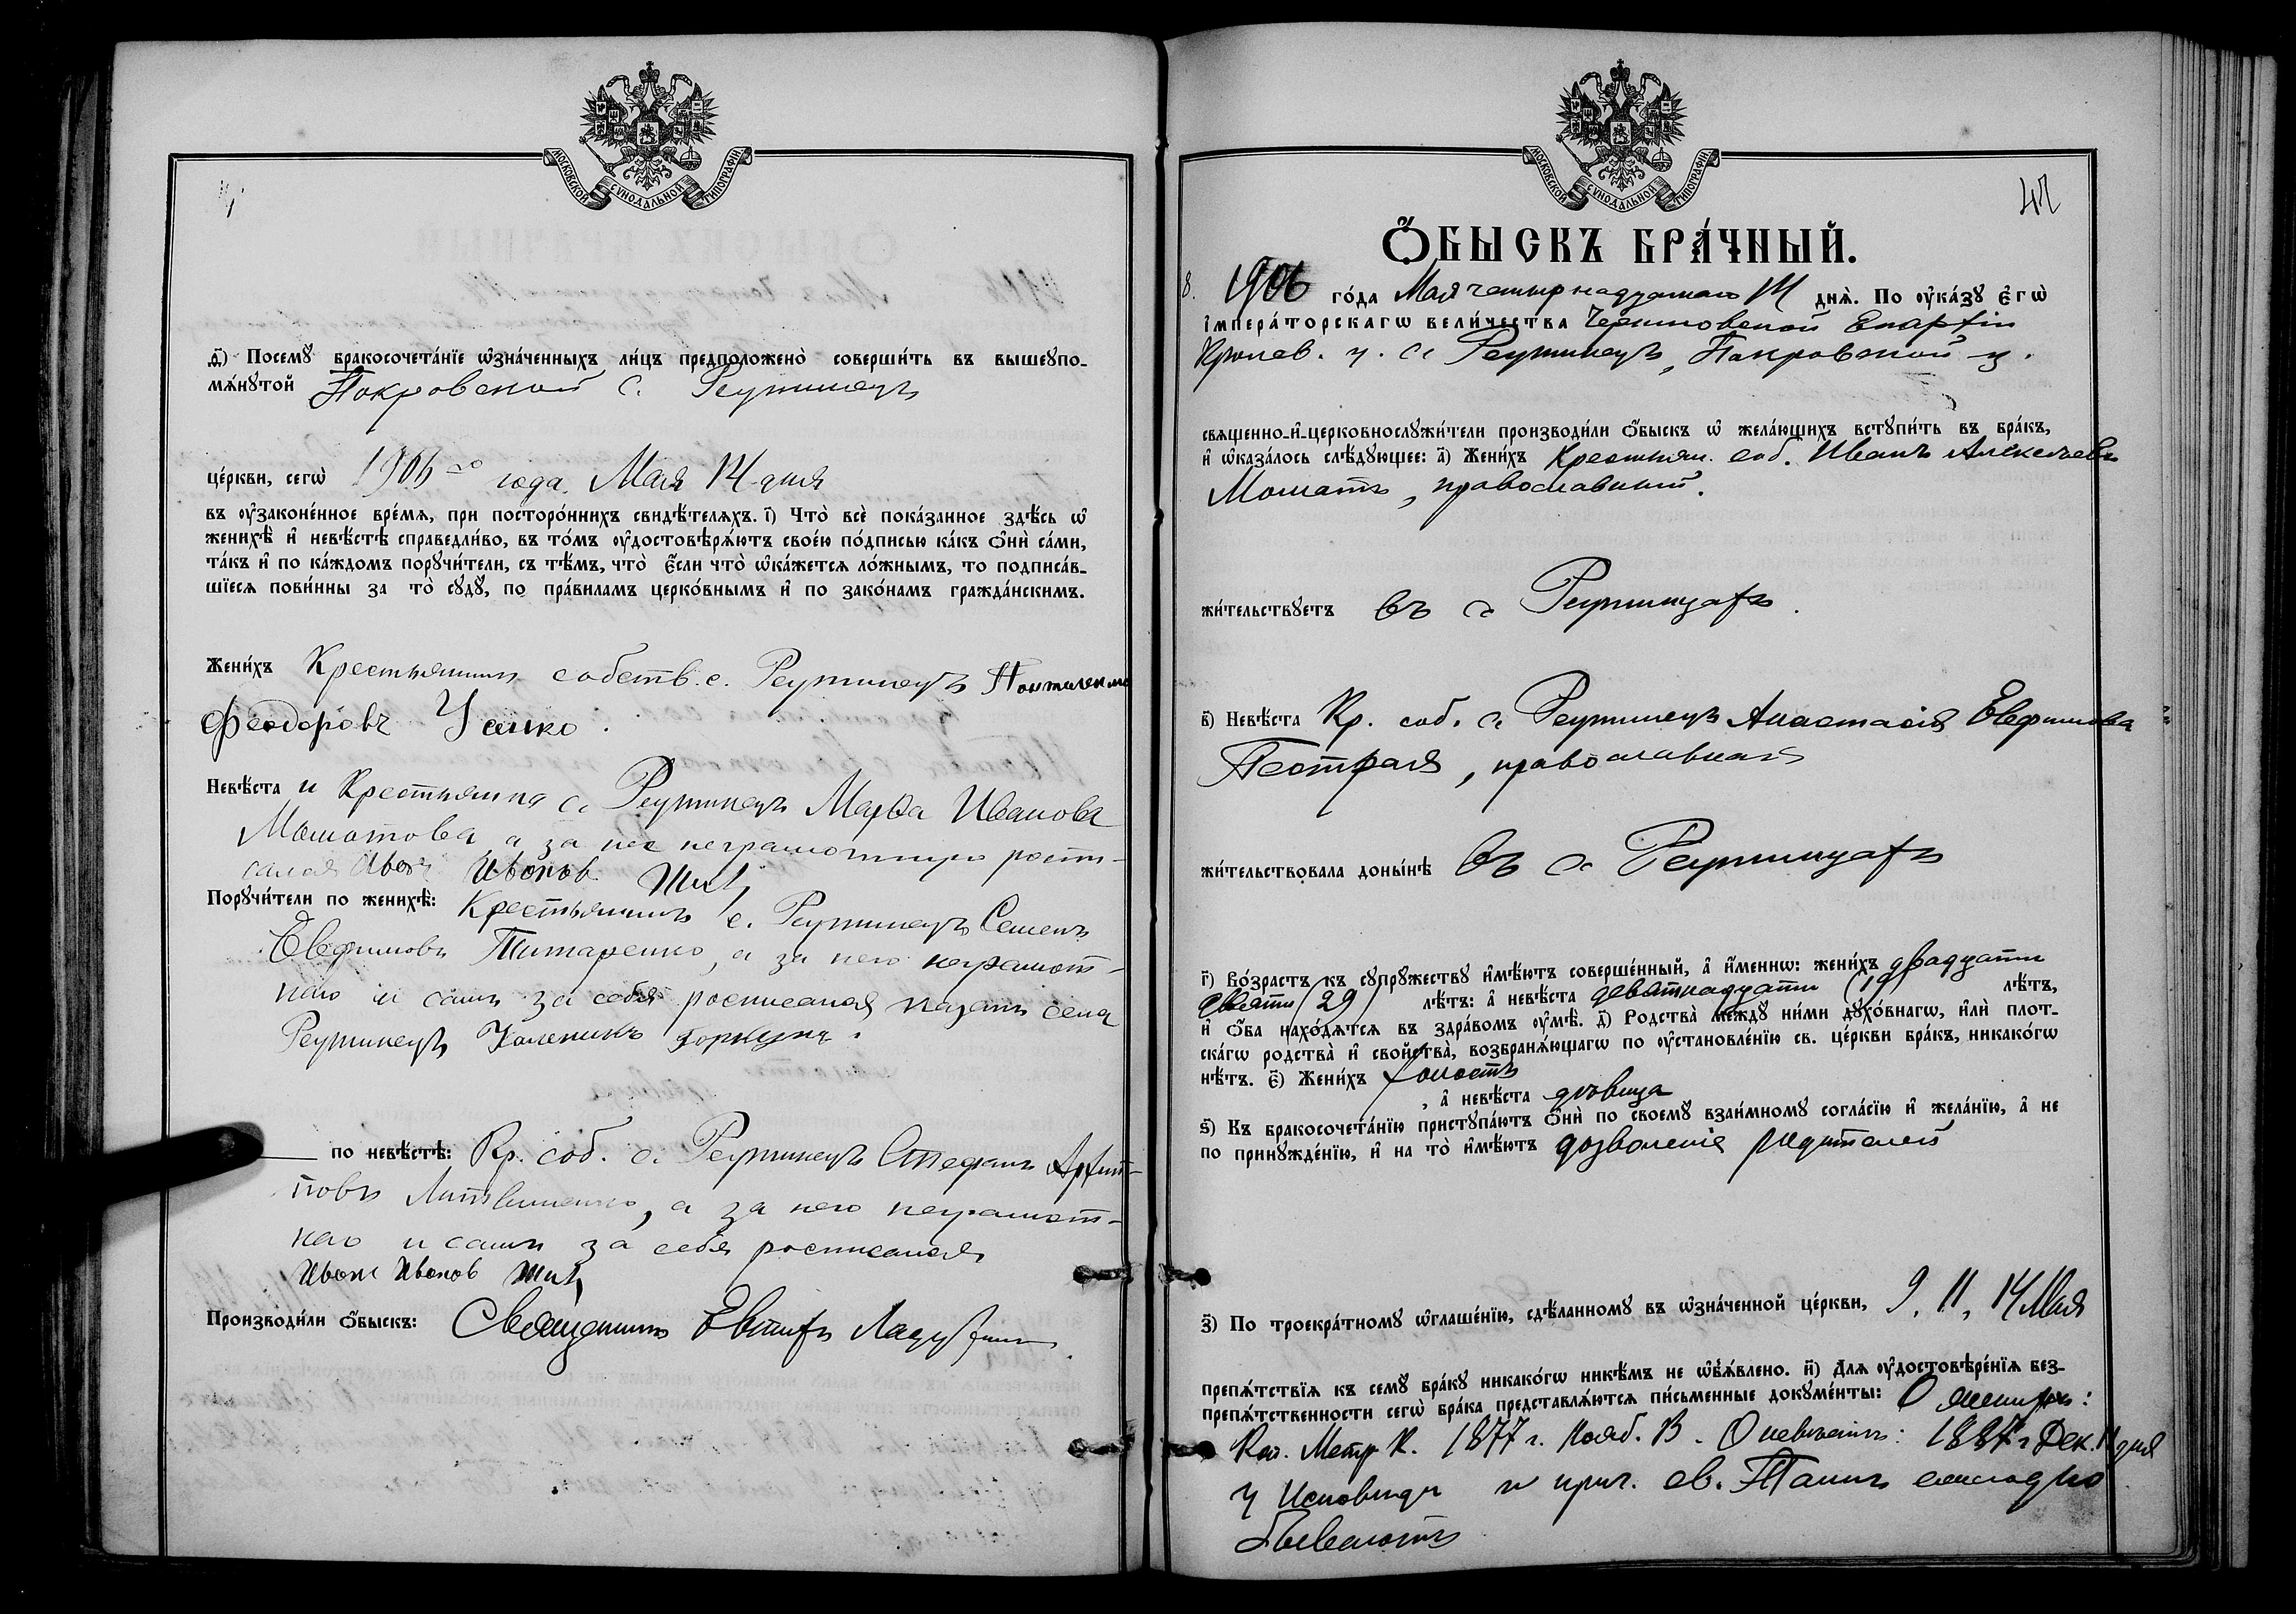 МОСКОВСКОЙ СѴНОДАЛЬНОЙ ТИПОГРАФІИ.
д҃) Посемꙋ̀ бракосочета́нїе ѡ҆зна́ченныхъ ли́цъ предположено̀ соверши́ть въ вышеꙋпо-
мѧ́нꙋтой Покровской с. Реутинецъ
це́ркви, сегѡ̀ 1906го года. Мая 14 дня
въ ᲂу҆законе́нное вре́мѧ, при посторо́ннихъ свидѣ́телѧхъ. і҃) Что̀ всѐ пока́занное здѣ́сь ѡ҆
женихѣ̀ и҆ невѣ́стѣ справедли́во, въ то́мъ ᲂу҆достовѣрѧ́ютъ свое́ю по́дписью ка́къ ѻ҆нѝ са́ми,
та́къ и҆ по ка́ждомъ порꙋчи́тели, съ тѣ́мъ, что̀ є҆́сли что̀ ѡ҆ка́жетсѧ ло́жнымъ, то подписа́в-
шїесѧ пови́нны за то̀ сꙋдꙋ̀, по пра́виламъ церко́внымъ и҆ по зако́намъ гражда́нскимъ.
Жени́хъ Крестьянинъ собств. с. Реутинецъ
Феодоровъ Усенко.
Невѣ́ста и Крестьянка с. Реутинецъ Марѳа Иванова
а за нее неграмотную роспи-
сался Иван Иванов
Порꙋчи́тели по женихѣ̀: Крестьянинъ с. Реутинецъ Семенъ
Евфимовъ Титаренко, а за него неграмот-
наго и самъ за себя росписался казакъ села
Реутинецъ Каленикъ Горкуша.
по невѣ́стѣ: Кр. соб. с. Реутинецъ Стефанъ Архип-
повъ Литвиненко, а за него неграмот-
наго и самъ за себя росписался
Иван Иванов
Производи́ли ѻ҆́быскъ: Священникъ
МОСКОВСКОЙ СѴНОДАЛЬНОЙ ТИПОГРАФІИ.
42
Ѻ҆́БЫСКЪ БРА́ЧНЫЙ.
8. 1906 го́да Мая четырнадцатаго 14 днѧ̀. По ᲂу҆ка́зꙋ є҆гѡ̀
і҆мпера́торскагѡ вели́чества Черниговской Епархіи
Кролев. у. с. Реутинецъ, Покровской ц.
свѧщенно-и҆-церковнослꙋжи́тели производи́ли ѻ҆́быскъ ѡ҆ жела́ющихъ встꙋпи́ть въ бра́къ,
и҆ ѡ҆каза́лось слѣ́дꙋющее: а҃) Жени́хъ Крестьян. соб. Иванъ Алексѣевъ
православный.
жи́тельствꙋетъ въ с. Реутинцахъ.
в҃) Невѣ́ста Кр. соб. с. Реутинецъ Анастасія Евфимова
Пестрая, православная
жи́тельствовала доны́нѣ въ с. Реутинцахъ
г҃) Во́зрастъ къ сꙋпрꙋ́жествꙋ и҆мѣ́ютъ соверше́нный, а҆ и҆́менно: жени́хъ двадцати
девяти (29) лѣ́тъ: а҆ невѣ́ста девятнадцати (19) лѣ́тъ,
и҆ ѻ҆́ба нахо́дѧтсѧ въ здра́вомъ ᲂу҆мѣ̀. д҃) Родства̀ междꙋ̀ ни́ми дꙋхо́внагѡ, и҆лѝ плот-
ска́гѡ родства̀ и҆ свойства̀, возбранѧ́ющагѡ по ᲂу҆становле́нїю св. це́ркви бра́къ, никако́гѡ
нѣ́тъ. є҃) Жени́хъ холостъ
, а҆ невѣ́ста дѣвица
ѕ҃) Къ бракосочета́нїю пристꙋпа́ютъ ѻ҆нѝ по своемꙋ̀ взаи́мномꙋ согла́сїю и҆ жела́нїю, а҆ не
по принꙋжде́нїю, и҆ на то̀ и҆мѣ́ютъ дозволеніе родителей
з҃) По троекра́тномꙋ ѡ҆глаше́нїю, сдѣ́ланномꙋ въ ѡ҆зна́ченной це́ркви, 9, 11, 14 Мая
препѧ́тствїѧ къ семꙋ̀ бра́кꙋ никако́гѡ никѣ́мъ не ѡ҆б̾ѧ́влено. и҃) Длѧ ᲂу҆достовѣре́нїѧ без-
препѧ́тственности сегѡ̀ бра́ка представлѧ́ютсѧ пи́сьменные докꙋме́нты: О женихѣ:
Коп. Метр. К. 1877 г. Нояб. 13. О невѣстѣ: 1887 г. Дек. 11 дня
У Исповѣди и прич. св. Таинъ ежегодно
бываютъ